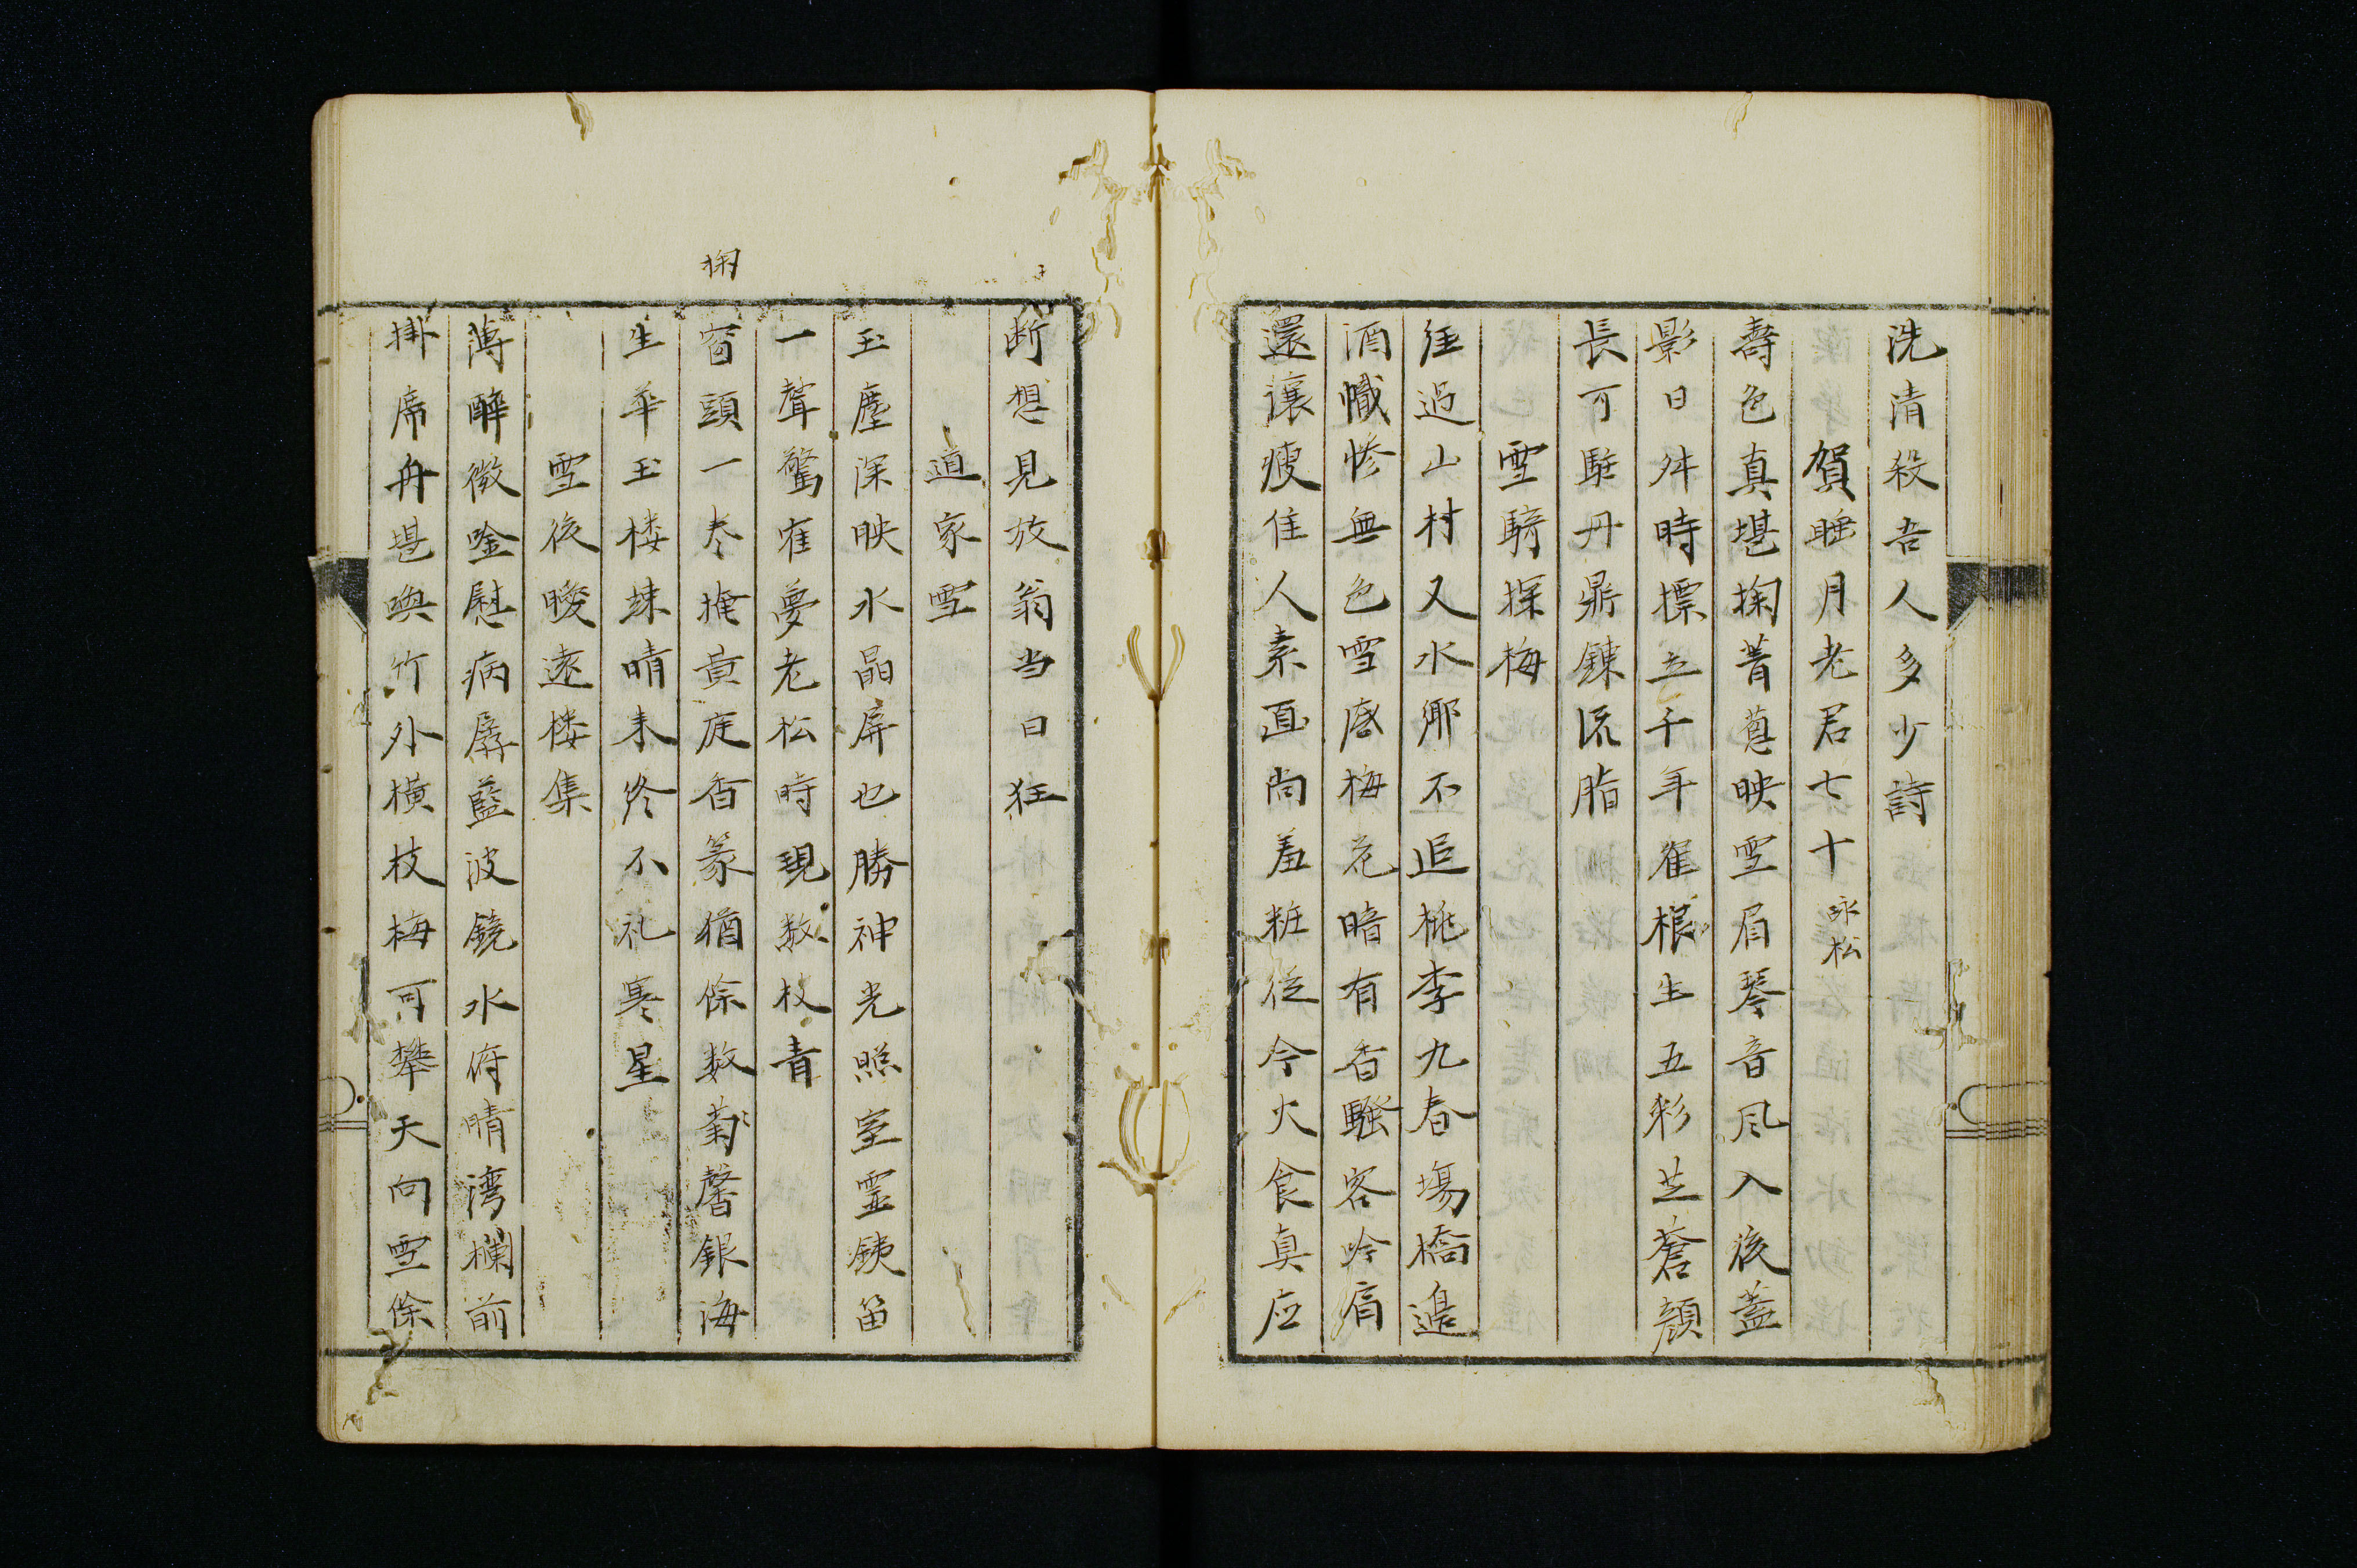 洗清殺吾人多少詩
賀睡月老君七十 咏松
壽色真堪掬菁葱映雪眉琴音風入後蓋
影日升時標立千年雀根生五彩芝蒼顔
長可駐丹鼎錬流脂
雪騎探梅
徃過山村又水郷不追桃李九春場橋邉
酒幟惨無色雪底梅花暗有香騷客吟肩
還讓瘦佳人素面尚羞粧従今火食真应
断想見放翁当日狂
道家雪
玉塵深映水晶屏也勝神光照室霊鉄笛
一聲驚隺夢老松時現数枝青
掬
窗頭一巻掩黄庭香篆猶餘数菊馨銀海
生華玉楼竦晴来終不礼寒星
雪後晙遠楼集
薄醉微唫慰病孱藍波鏡水府晴湾欄前
掛席舟堪喚竹外横枝梅可攀天向雪餘